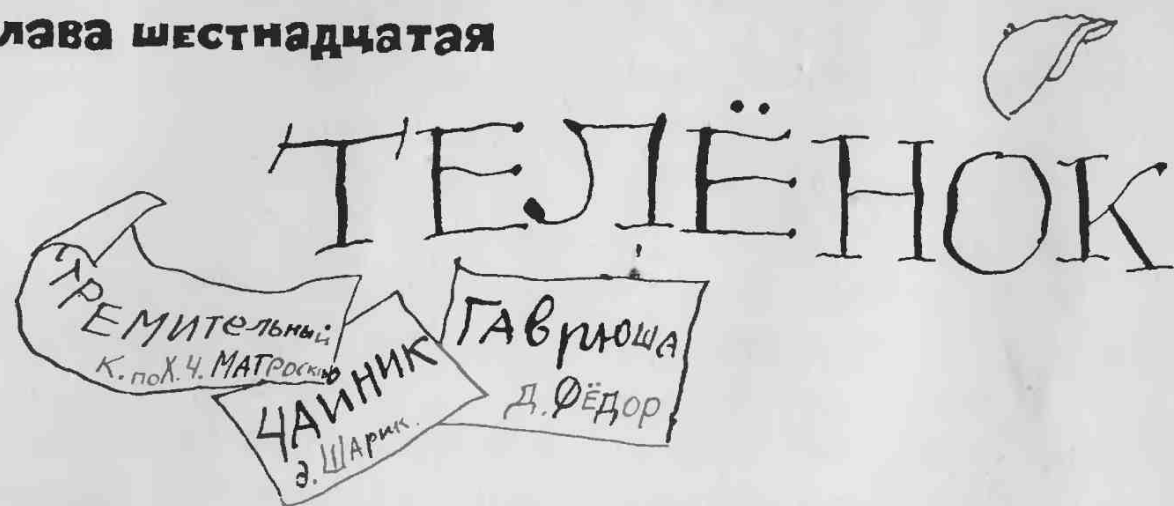 лава шестнадцатая
ТЕЛЁНОК
СТРЕМИТЕЛЬНЫЙ
К. по Х. Ч. МАТРОСКИН
ЧАЙНИК
Э. ШАРИК.
ГАВРЮША
Д. ФЁДОР